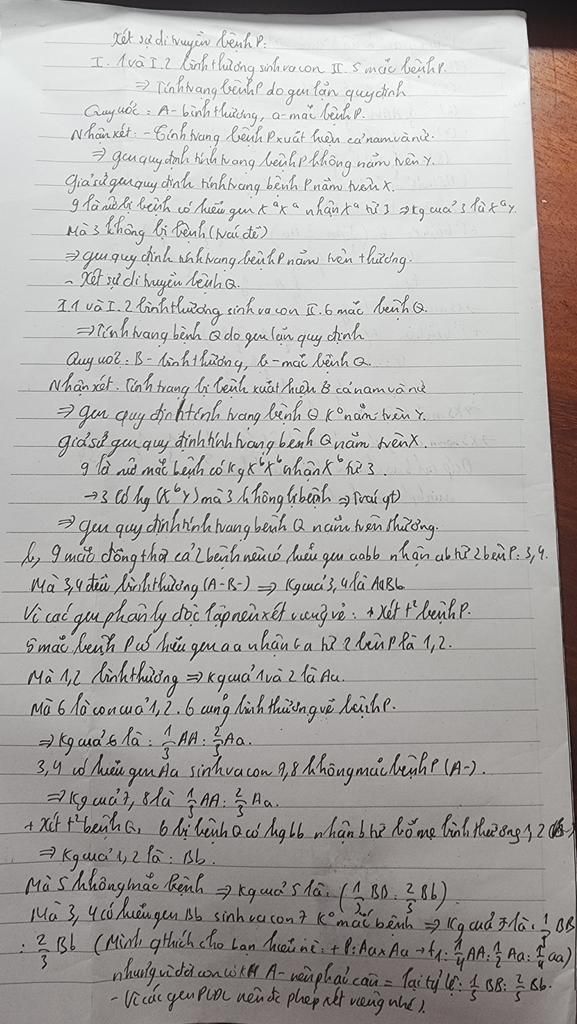 Xét sự di truyền bệnh P:
I. 1 và I. 2 bình thường sinh ra con II. 5 mắc bệnh P.
⇒ Tính trạng bệnh P do gen lặn quy định
Quy ước: A - bình thường, a - mắc bệnh P.
Nhận xét: - Tính trạng bệnh P xuất hiện cả nam và nữ
⇒ gen quy định tính trạng bệnh P không nằm trên Y.
Giả sử gen quy định tính trạng bệnh P nằm trên X.
9 là nữ bị bệnh có kiểu gen XᵃXᵃ nhận Xᵃ từ 3 ⇒ kg của 3 là XᵃY.
Mà 3 không bị bệnh (trái đề)
⇒ gen quy định tính trạng bệnh P nằm trên thường.
- Xét sự di truyền bệnh Q.
I.1 và I.2 bình thường sinh ra con II.6 mắc bệnh Q.
⇒ Tính trạng bệnh Q do gen lặn quy định
Quy ước: B - bình thường, b - mắc bệnh Q.
Nhận xét. Tính trạng bị bệnh xuất hiện ở cả nam và nữ
⇒ gen quy định tính trạng bệnh Q K⁰ nằm trên Y.
giả sử gen quy định tính trạng bệnh Q nằm trên X.
9 là nữ mắc bệnh có kg XᵇXᵇ nhận Xᵇ từ 3.
→ 3 có kg (XᵇY) mà 3 không bị bệnh ⇒ Trái gt)
⇒ gen quy định tính trạng bệnh Q nằm trên thường.
b, 9 mắc đồng thời cả 2 bệnh nên có kiểu gen aabb nhận ab từ 2 bên P: 3,4.
Mà 3,4 đều bình thường (A-B-) ⇒ Kg của 3,4 là AaBb.
Vì các gen phân ly độc lập nên xét riêng rẽ: + Xét t² bệnh P.
5 mắc bệnh P có kiểu gen aa nhận a từ 2 bên P là 1,2.
Mà 1,2 bình thường ⇒ kg của 1 và 2 là Aa.
Mà 6 là con của 1,2. 6 cũng bình thường về bệnh P.
⇒ Kg của 6 là: 1/3 AA : 2/3 Aa.
3,4 có kiểu gen Aa sinh ra con 7,8 không mắc bệnh P (A-).
⇒ Kg của 7, 8 là 1/3 AA : 2/3 Aa.
+ Xét t² bệnh Q, 6 bị bệnh Q có kg bb nhận b từ bố mẹ bình thường 1,2 (B-)
⇒ Kg của 1,2 là: Bb.
Mà 5 không mắc bệnh ⇒ Kg của 5 là: (1/3 BB : 2/3 Bb)
Mà 3, 4 có kiểu gen Bb sinh ra con 7 K⁰ mắc bệnh ⇒ Kg của 7 là: 1/3 BB
: 2/3 Bb (Mình giải thích cho bạn hiểu nè: + P: Aa x Aa → f1: 1/4 AA : 1/2 Aa : 1/4 aa)
nhưng vì đời con có KH A- nên phải cân = lại tỷ lệ: 1/3 BB : 2/3 Bb.
- Vì các gen PLĐL nên đc phép xét riêng nhé).